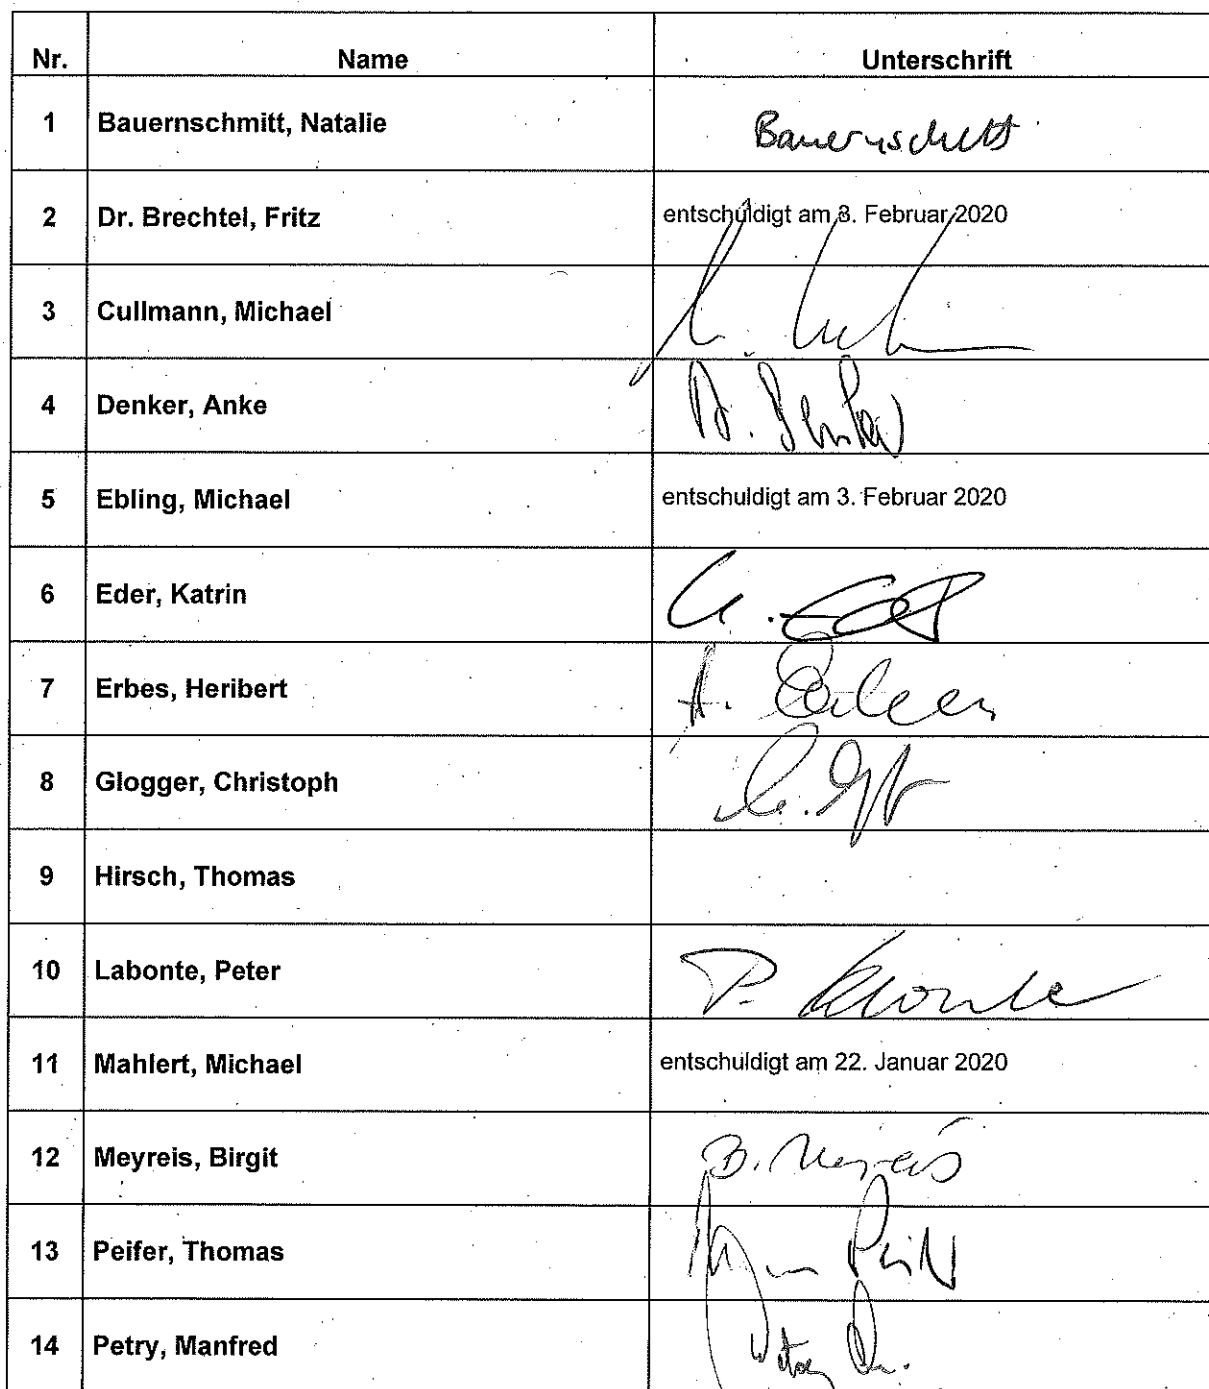 Nr. Name Unterschrift
1 Bauernschmitt, Natalie
2 Dr. Brechtel, Fritz entschuldigt am 3. Februar 2020
3 Cullmann, Michael
4 Denker, Anke A. Denker
5 Ebling, Michael entschuldigt am 3. Februar 2020
6 Eder, Katrin
7 Erbes, Heribert
8 Glogger, Christoph
9 Hirsch, Thomas
10 Labonte, Peter P. Labonte
11 Mahlert, Michael entschuldigt am 22. Januar 2020
12 Meyreis, Birgit B. Meyreis
13 Peifer, Thomas
14 Petry, Manfred